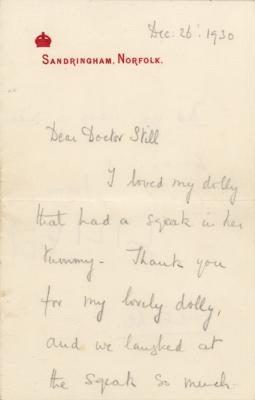 Dec: 26: 1930
SANDRINGHAM, NORFOLK.
Dear Doctor Still
I loved my dolly
that had a sqeak in her
tummy- Thank you
for my lovely dolly,
and we laughed at
the sqeak so much-